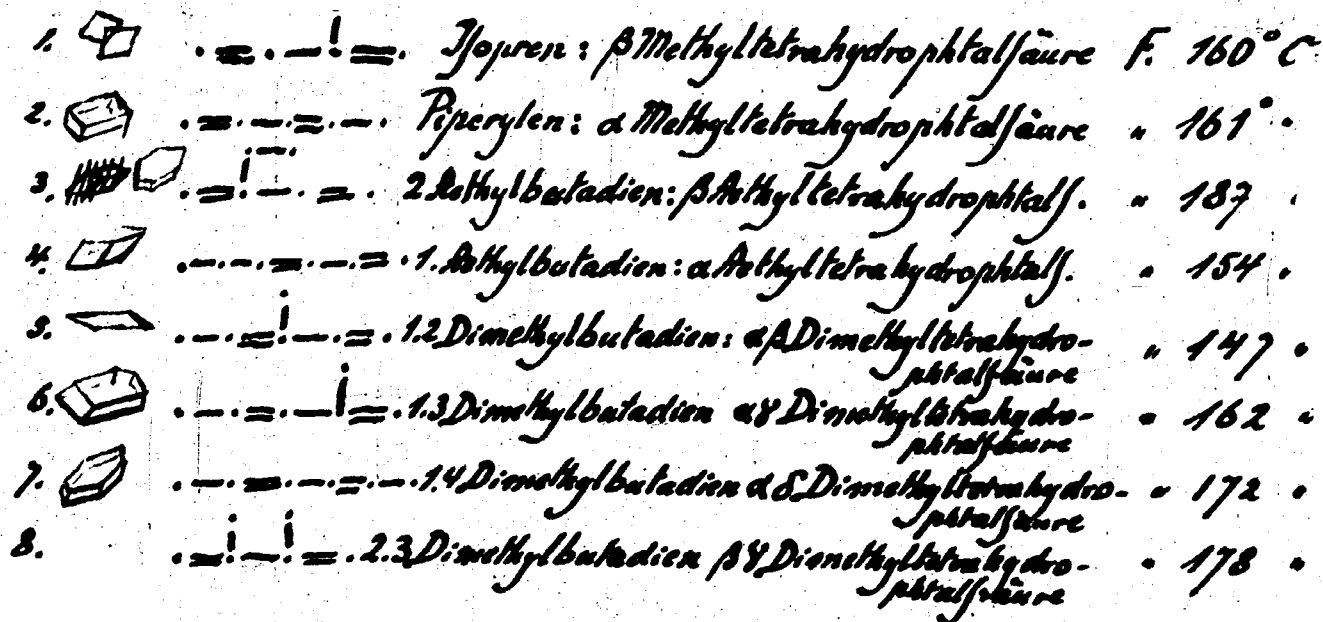 1. Isopren: β Methyltetrahydrophtalsäure F. 160° C
2. Piperylen: α Methyltetrahydrophtalsäure " 161° "
3. 2 Aethylbutadien: β Aethyltetrahydrophtals. " 187 "
4. 1. Aethylbutadien: α Aethyltetrahydrophtals. " 154 "
5. 1.2 Dimethylbutadien: αβ Dimethyltetrahydro- " 147 "
phtalsäure
6. 1.3 Dimethylbutadien αγ Dimethyltetrahydro- " 162 "
phtalsäure
7. 1.4 Dimethylbutadien αδ Dimethyltetrahydro- " 172 "
phtalsäure
8. 2.3 Dimethylbutadien βγ Dimethyltetrahydro- " 178 "
phtalsäure